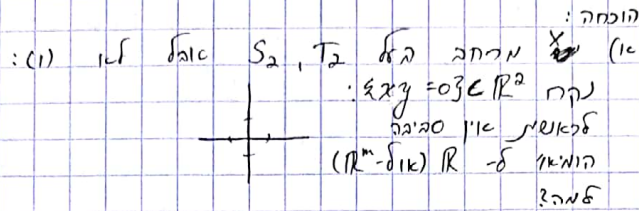 הוכחה:
א) X מרחב בעל T₂, S₂ אבל לא (1):
נקח {xy=0}⊂ℝ²:
לראשית אין סביבה
הומיאו׳ ל-ℝ (או ל-ℝᵐ)
למה?